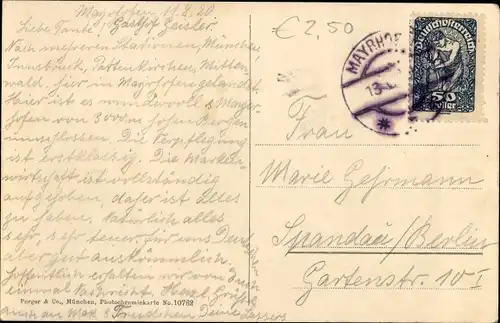 Mayrhofen 11.8.20
Gasthof Geisler
Liebe Tante!
Nach mehreren Stationen, München
Innsbruck, Partenkirchen, Mitten-
wald, hier in Mayrhofen gelandet.
Hier ist es wundervoll s Mayer-
hofen von 3000 m hohen Bergen
umschlossen. Die Verpflegung
ist erstklassig. Die Marken-
wirtschaft ist vollständig
aufgehoben, daher ist alles
zu haben. Natürlich alles
sehr, sehr teuer. für uns Deutsche
aber gut auskömmlich.
Hoffentlich erhalten wir von Euch
einmal Nachricht. Herzl. Grüße
auch an Max
€ 2,50
MAYRHOF
13.
Deutschösterreich
50
Heller
Frau
Marie Gehrmann
Spandau/Berlin
Gartenstr. 10 I
Perger & Co., München, Photochromiekarte No. 10762